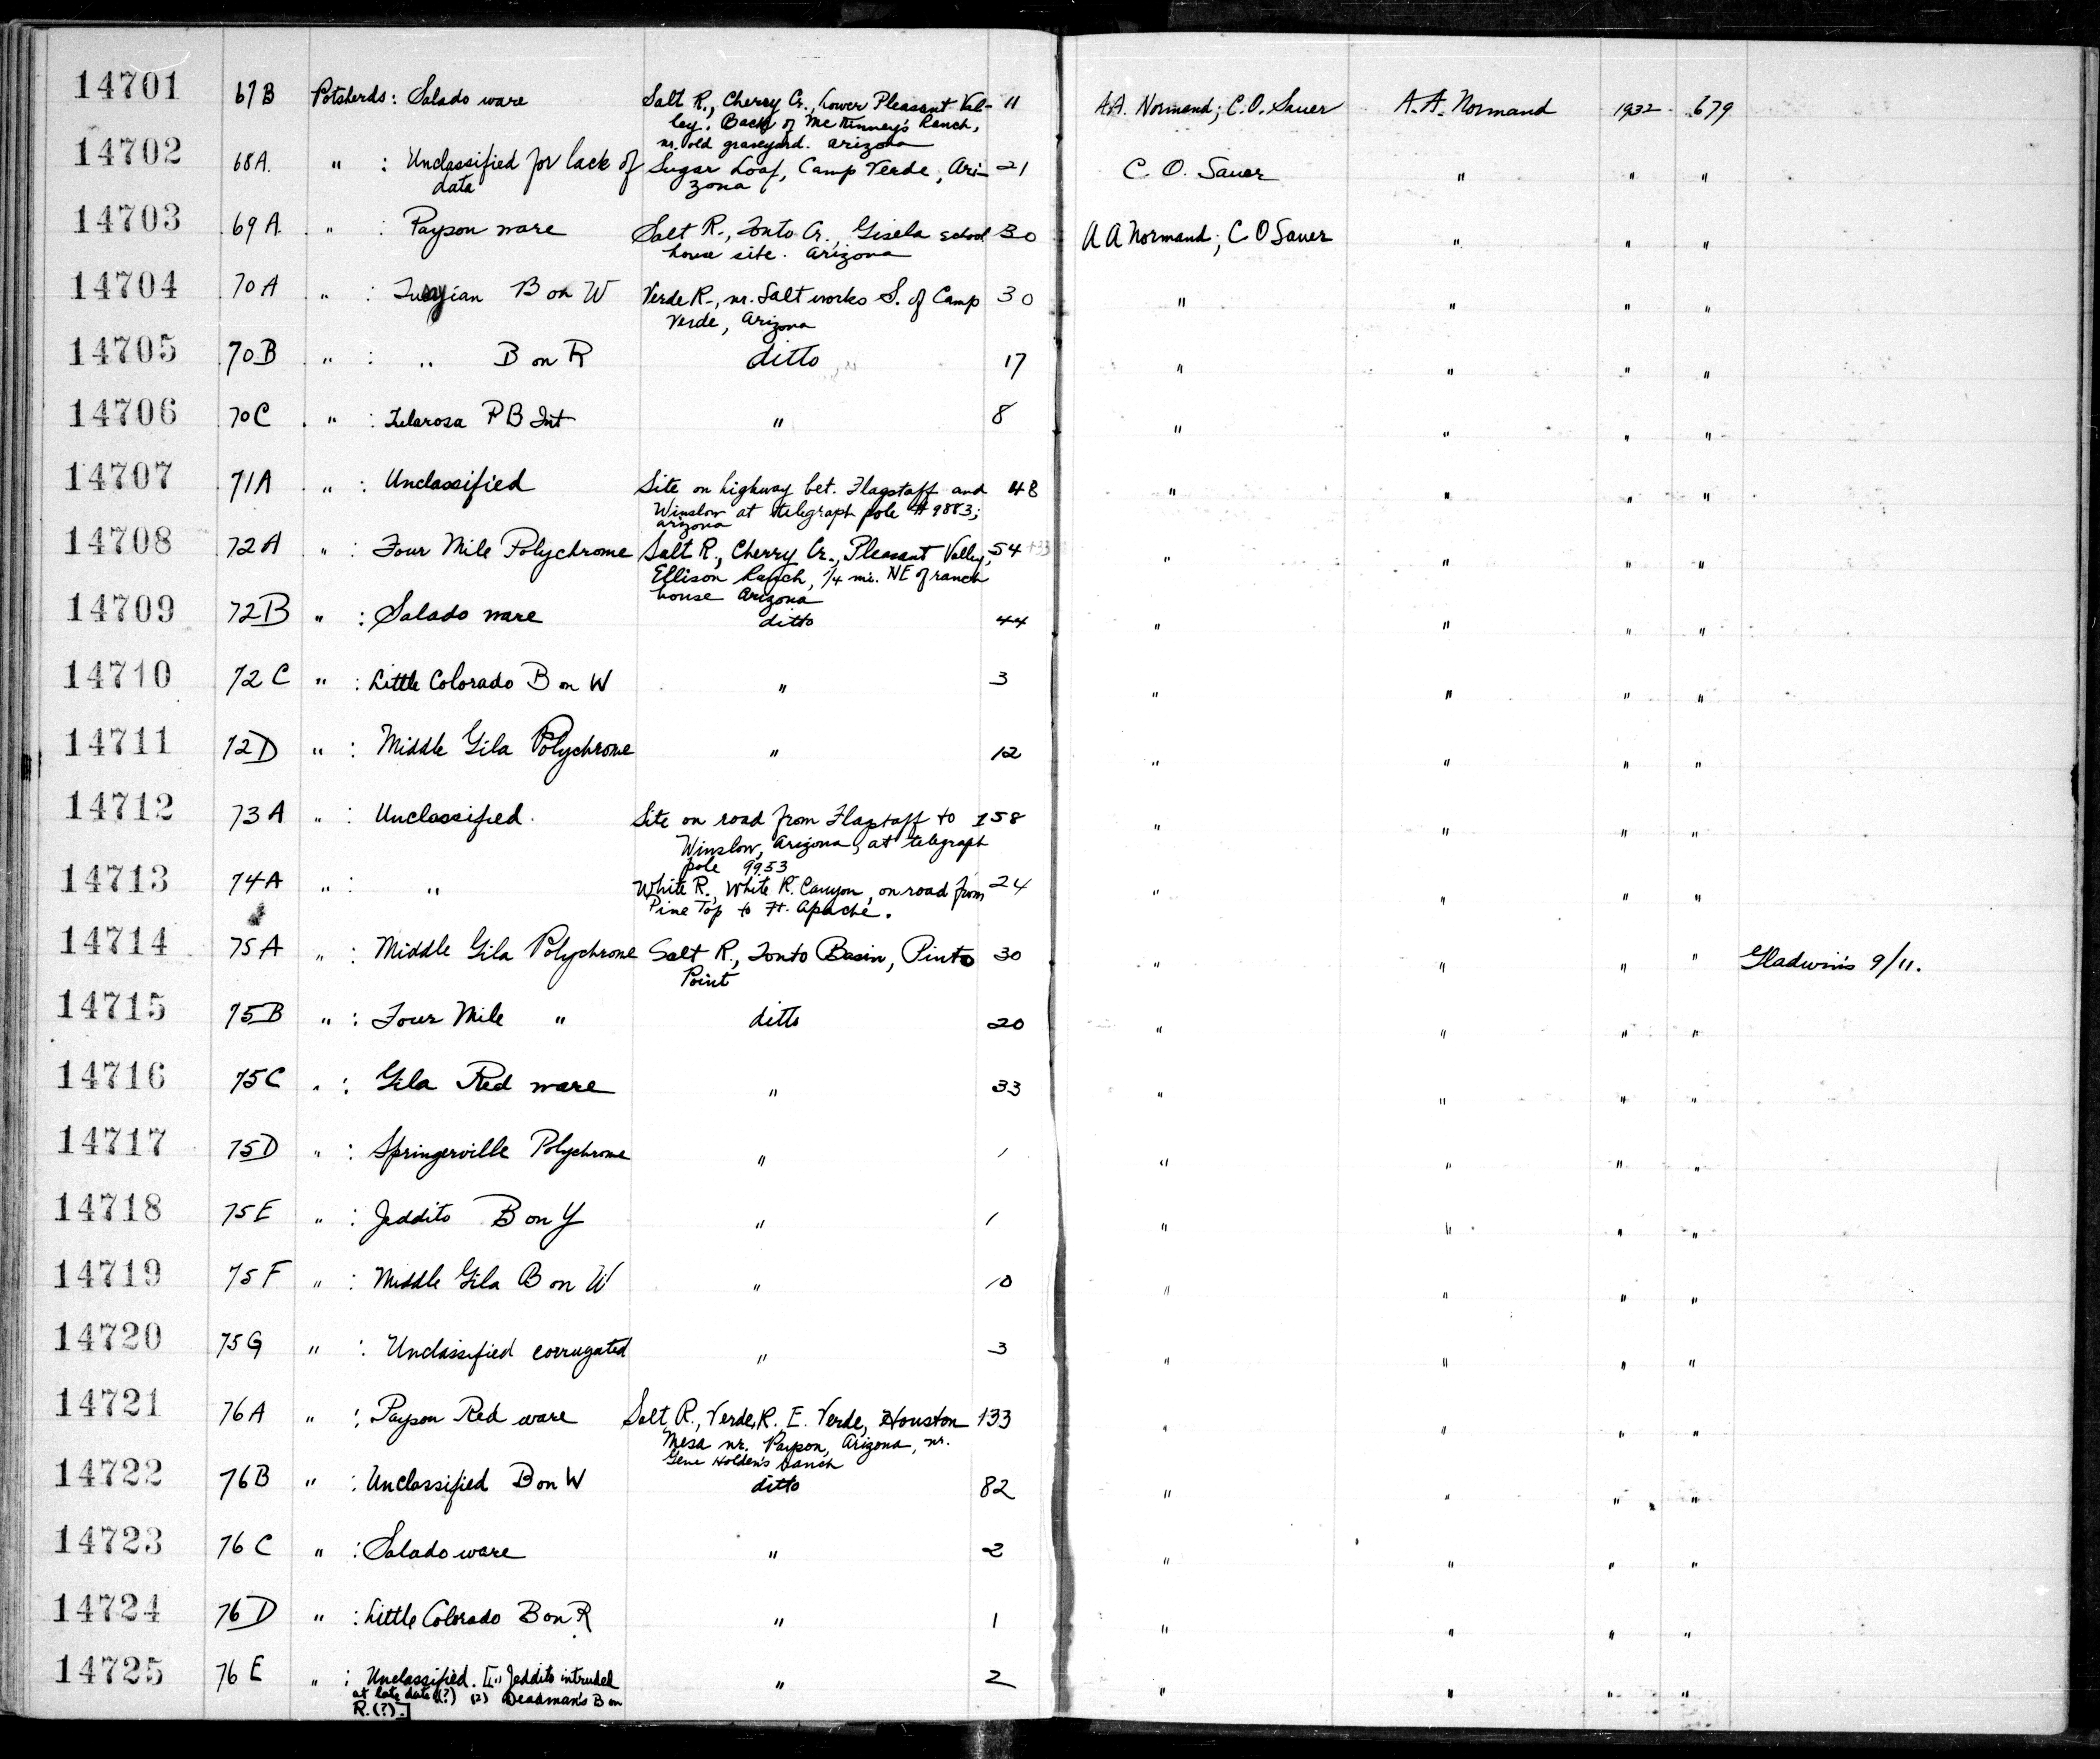 14701 67B Potsherds: Salado ware Salt R., Cherry Cr., Lower Pleasant Val- 11 A.A. Normand; C.O. Sauer A.A. Normand 1932 679
ley. Back of McKinney's Ranch,
nr. old graveyard. Arizona
14702 68A. " : Unclassified for lack of Sugar Loaf, Camp Verde, Ari- 21 C. O. Sauer " " "
data zona
14703 69A. " : Payson ware Salt R., Tonto Cr., Gisela school 30 A A Normand; C O Sauer " " "
house site. Arizona
14704 70A " : B on W Verde R., nr. Salt works S. of Camp 30 " " " "
Verde, Arizona
14705 70B " : " B on R ditto 17 " " " "
14706 70C " : Tularosa P B Int " 8 " " " "
14707 71A " : Unclassified Site on highway bet. Flagstaff and 48 " " " "
Winslow at telegraph pole #9883;
Arizona
14708 72A " : Four Mile Polychrome Salt R., Cherry Cr., Pleasant Valley, 54 +33 " " " "
Ellison Ranch, 1/4 mi. NE of ranch
house Arizona
14709 72B " : Salado ware ditto 44 " " " "
14710 72C " : Little Colorado B on W " 3 " " " "
14711 72D " : Middle Gila Polychrome " 12 " " " "
14712 73A " : Unclassified. Site on road from Flagstaff to 158 " " " "
Winslow, Arizona, at telegraph
pole 9953
14713 74A " : " White R., White R. Canyon, on road from 24 " " " "
Pine Top to Ft. Apache.
14714 75A " : Middle Gila Polychrome Salt R., Tonto Basin, Pinto 30 " " " " Gladwin's 9/11.
Point
14715 75B " : Four Mile " ditto 20 " " " "
14716 75C " : Gila Red ware " 33 " " " "
14717 75D " : Springerville Polychrome " 1 " " " "
14718 75E " : Jeddito B on Y " 1 " " " "
14719 75F " : Middle Gila B on W " 10 " " " "
14720 75G " : Unclassified corrugated " 3 " " " "
14721 76A " : Payson Red ware Salt R., Verde R. E. Verde, Houston 133 " " " "
Mesa nr. Payson, Arizona, nr.
Gene Holden's ranch
14722 76B " : Unclassified B on W ditto 82 " " " "
14723 76C " : Salado ware " 2 " " " "
14724 76D " : Little Colorado B on R " 1 " " " "
14725 76E " : Unclassified. [(1) Jeddito intruded " 2 " " " "
at late date (?) (2) Deadman's B on
R. (?)]